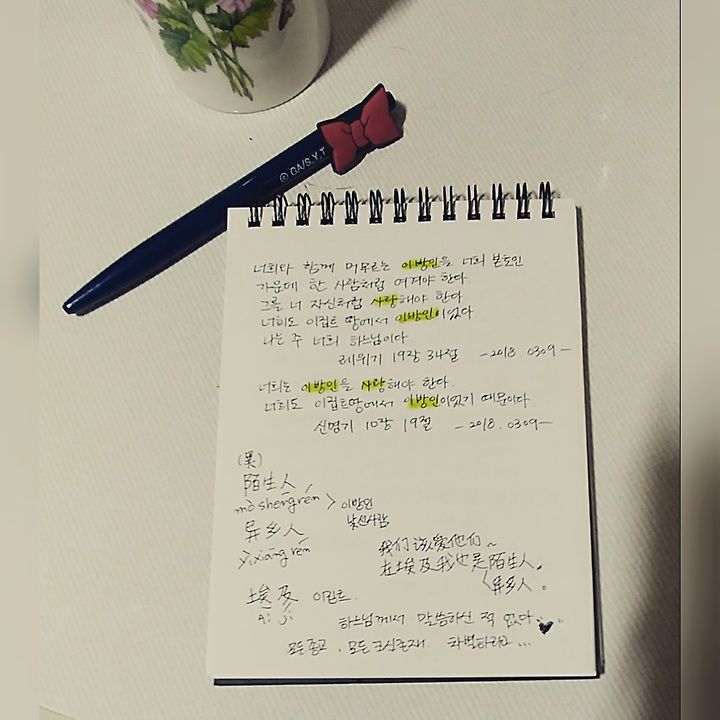 © G.N/S.Y.T
너희와 함께 머무르는 이방인을 너희 본토인
가운데 한 사람처럼 여겨야 한다
그를 너 자신처럼 사랑해야 한다
너희도 이집트 땅에서 이방인이었다.
나는 주 너희 하느님이다.
레위기 19장 34절 -2018. 0309-
너희는 이방인을 사랑해야 한다.
너희도 이집트땅에서 이방인이었기 때문이다
신명기 10장 19절 -2018. 0309-
(異)
陌生人
mò shēng rén > 이방인
낯선사람
异乡人
yì xiāng rén
我们该爱他们~
在埃及我也是陌生人。
异乡人。
埃及 이집트.
Āi jí
하느님께서 말씀하신 적 없다
모든종교, 모든 차별하라고...